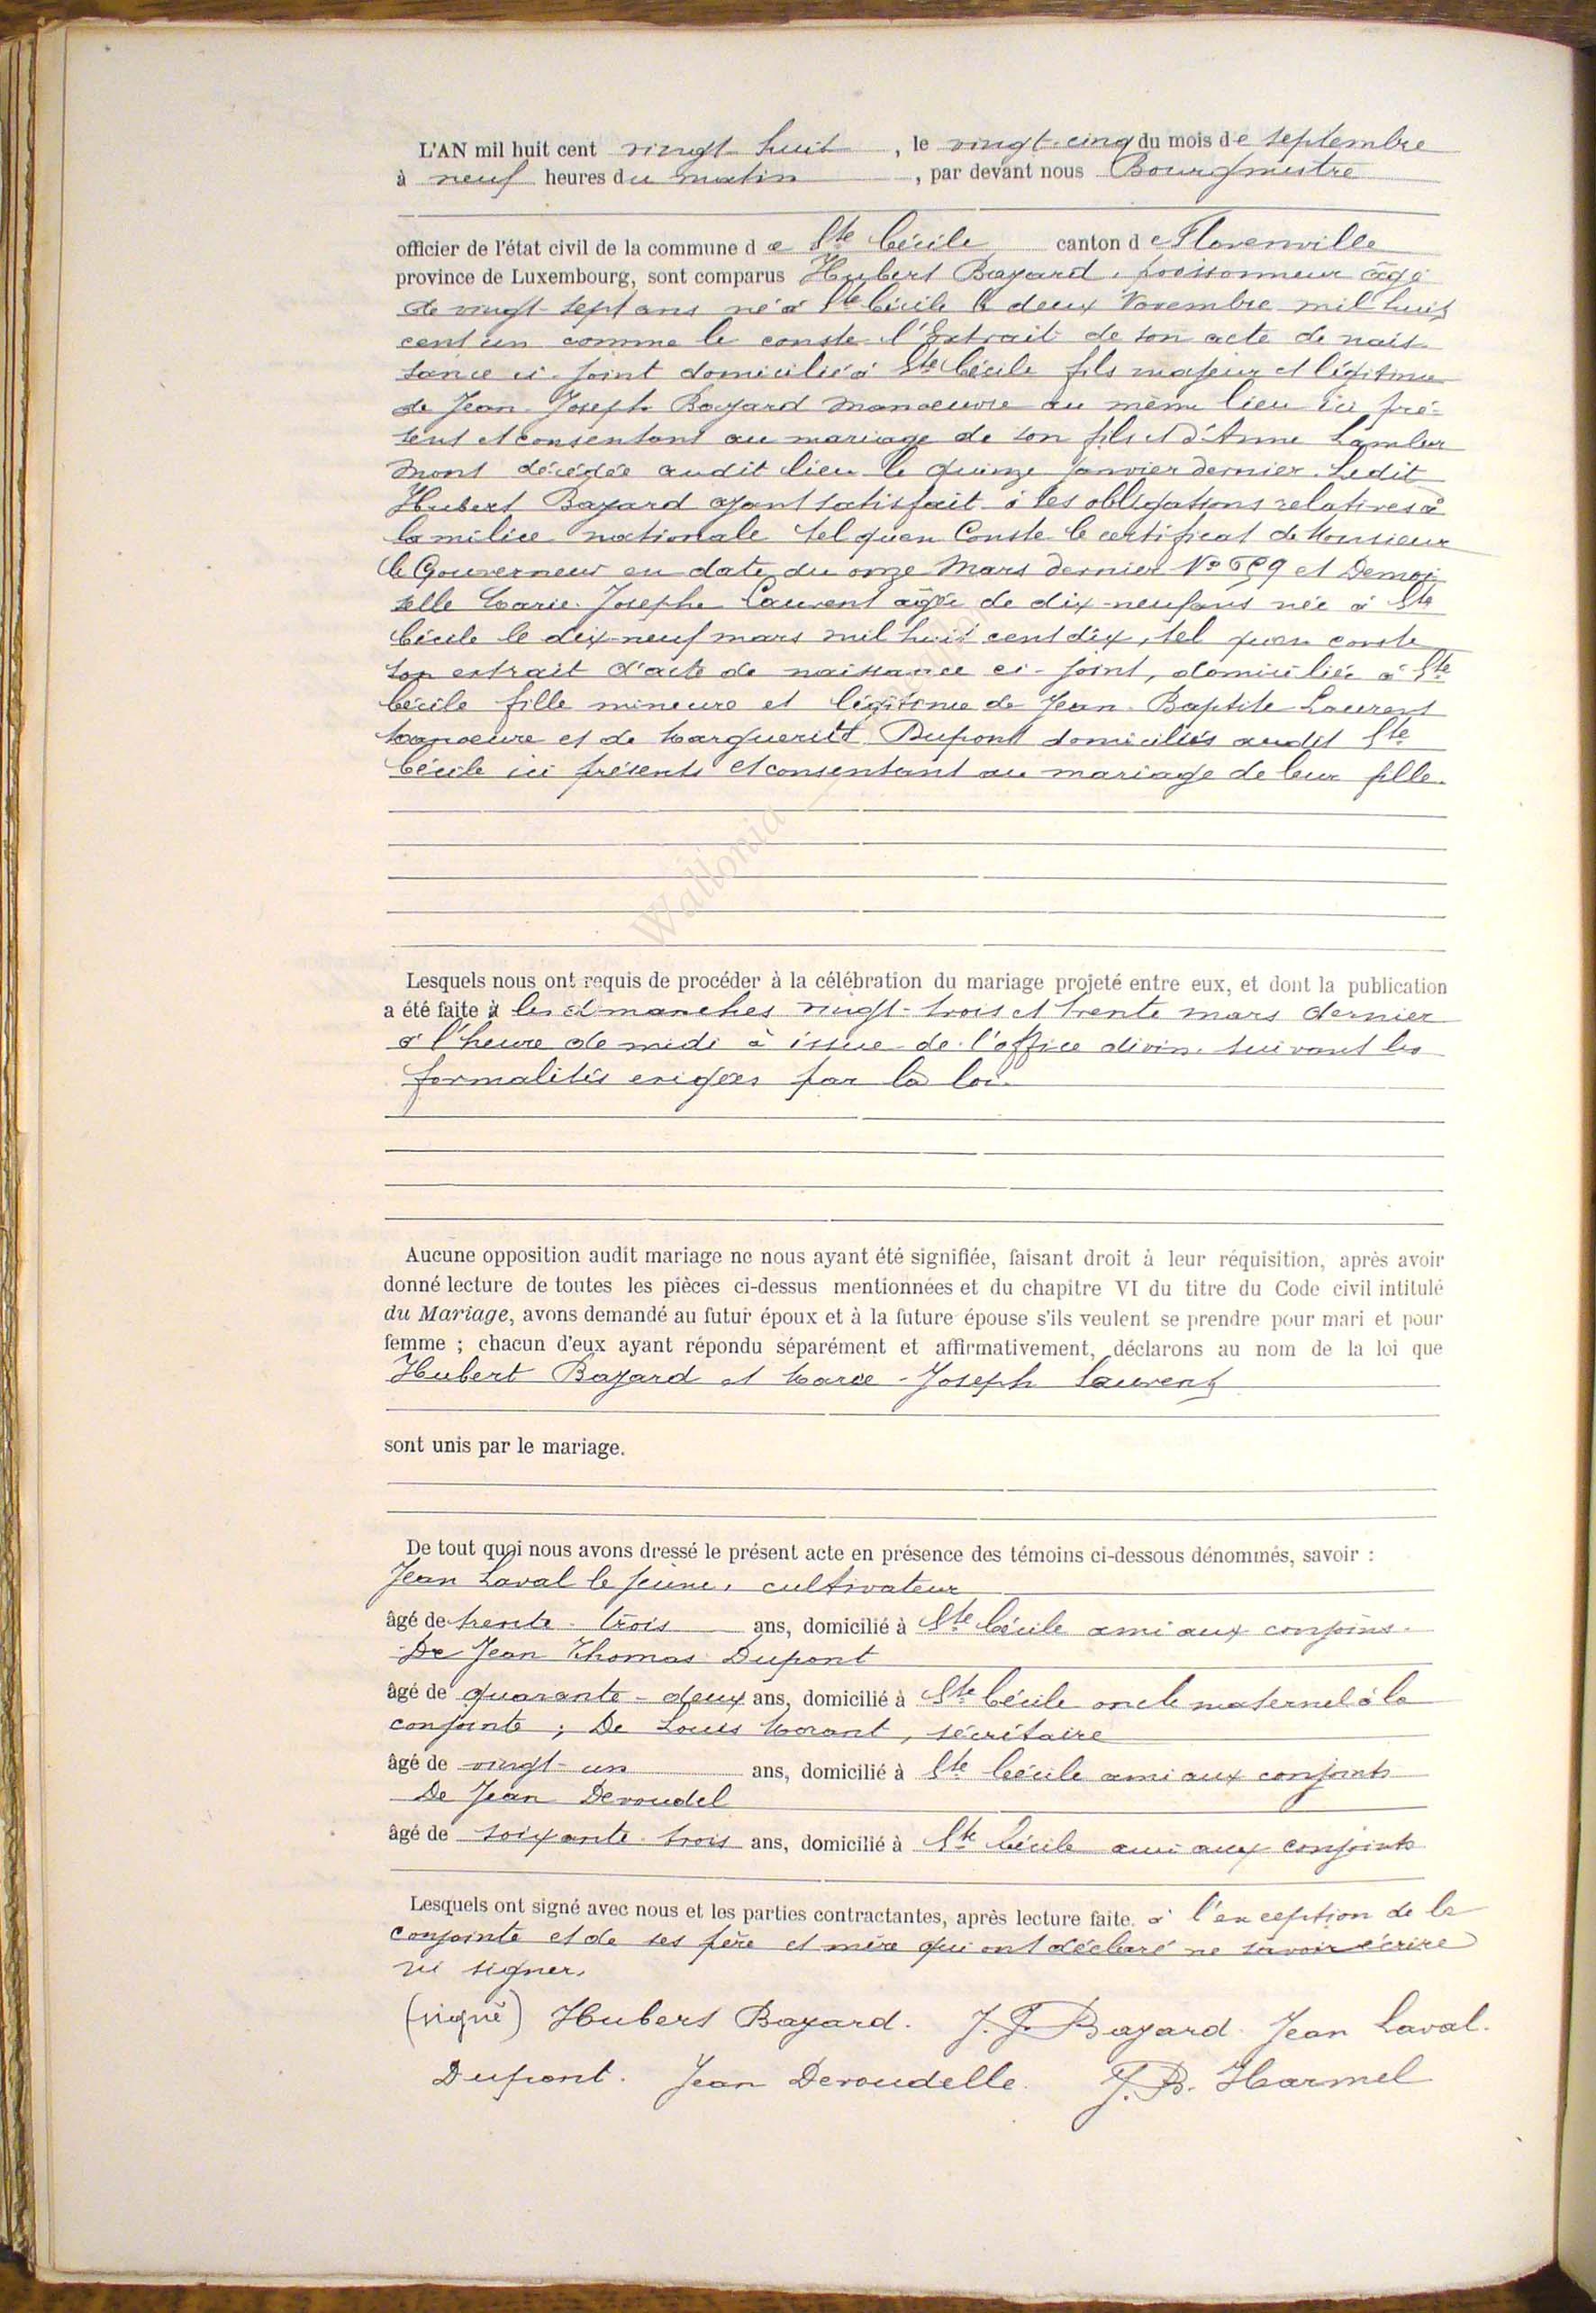 L'AN mil huit cent vingt-huit, le vingt-cinq du mois de septembre
à neuf heures du matin, par devant nous Bourgmestre
officier de l'état civil de la commune de Ste Cécile canton de Florenville
province de Luxembourg, sont comparus Hubert Bayard, poissonneur âgé
de vingt-sept ans né à Ste Cécile le deux Novembre mil huit
cent un comme le conste l'Extrait de son acte de nais-
sance ci-joint domicilié à Ste Cécile fils majeur et légitime
de Jean-Joseph Bayard Manoeuvre au même lieu ici pré-
sent et consentant au mariage de son fils et d'Anne Lamber
mont décédée audit lieu le quinze Janvier dernier. Ledit
Hubert Bayard ayant satisfait à ses obligations relatives à
la milice nationale tel qu'en Conste le certificat de Monsieur
le Gouverneur en date du onze Mars dernier No et Demoi
selle Marie-Josephe Laurent âgée de dix-neuf ans née à Ste
Cécile le dix-neuf mars mil huit cent dix, tel qu'en conste
son extrait d'acte de naissance ci-joint, domiciliée à Ste
Cécile fille mineure et légitime de Jean-Baptiste Laurent
Manoeuvre et de Marguerite Dupont domiciliés audit Ste
Cécile ici présents et consentant au mariage de leur fille.
Wallonia
Lesquels nous ont requis de procéder à la célébration du mariage projeté entre eux, et dont la publication
a été faite à les dimanches vingt-trois et trente mars dernier
à l'heure de midi à issue de l'office divin suivant les
formalités exigées par la loi.
Aucune opposition audit mariage ne nous ayant été signifiée, faisant droit à leur réquisition, après avoir
donné lecture de toutes les pièces ci-dessus mentionnées et du chapitre VI du titre du Code civil intitulé
du Mariage, avons demandé au futur époux et à la future épouse s'ils veulent se prendre pour mari et pour
femme ; chacun d'eux ayant répondu séparément et affirmativement, déclarons au nom de la loi que
Hubert Bayard et Marie-Joseph Laurent
sont unis par le mariage.
De tout quoi nous avons dressé le présent acte en présence des témoins ci-dessous dénommés, savoir :
Jean Laval le jeune, cultivateur
âgé de trente-trois ans, domicilié à Ste Cécile ami aux conjoins.
De Jean Thomas Dupont
âgé de quarante-deux ans, domicilié à Ste Cécile oncle maternel à la
conjointe ; De Louis Morant, sécrétaire
âgé de vingt-un ans, domicilié à Ste Cécile ami aux conjoints
De Jean Devoudel
âgé de soixante-trois ans, domicilié à Ste Cécile ami aux conjoints
Lesquels ont signé avec nous et les parties contractantes, après lecture faite. à l'exception de la
conjointe et de ses père et mère qui ont déclaré ne savoir écrire
ni signer.
(signé) Hubert Bayard. J. J. Bayard. Jean Laval.
Dupont. Jean Devoudelle. J. B. Harmel